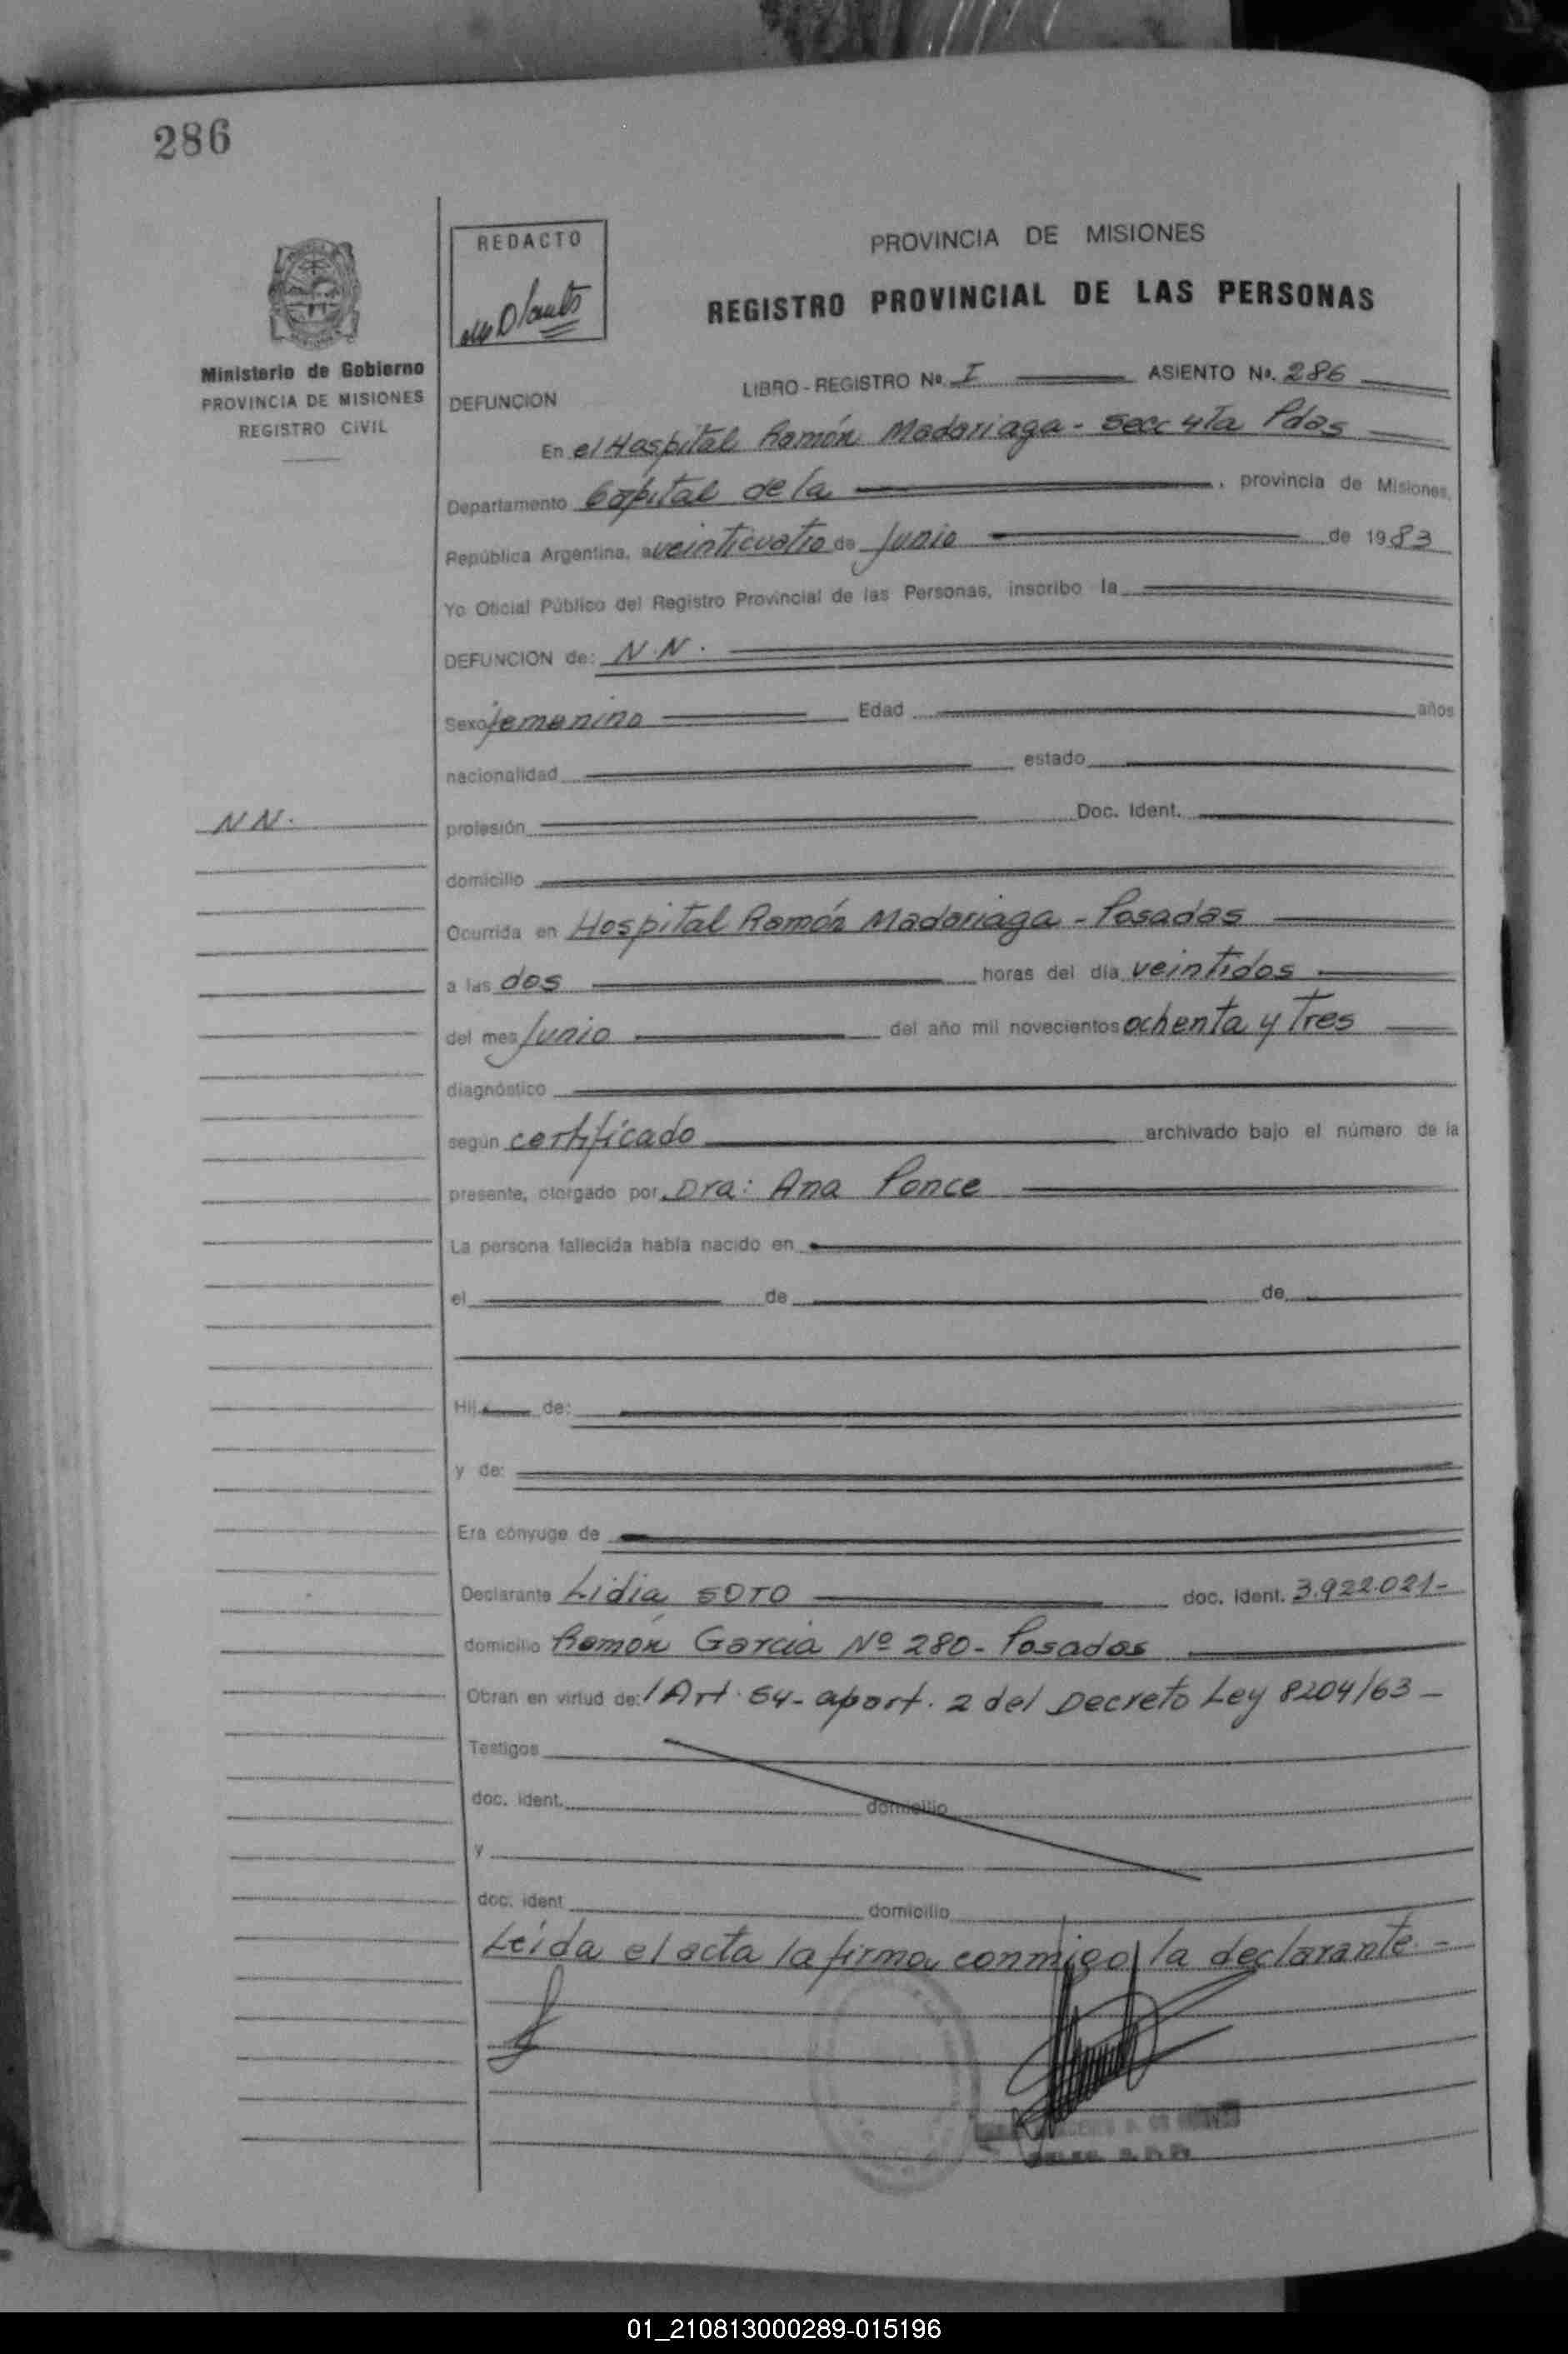 286
REDACTO
Ministerio de Gobierno
PROVINCIA DE MISIONES
REGISTRO CIVIL
PROVINCIA DE MISIONES
REGISTRO PROVINCIAL DE LAS PERSONAS
LIBRO - REGISTRO Nº. I ASIENTO Nº. 286
DEFUNCION
En el Hospital Ramón Madariaga - secc 4Ta Pdas
Departamento Capital de la , provincia de Misiones,
República Argentina, a veinticuatro de Junio de 1983
Yo Oficial Público del Registro Provincial de las Personas, inscribo la
DEFUNCION de: N.N.
Sexo femenino Edad años
nacionalidad estado
N N.
profesión Doc. Ident.
domicilio
Ocurrida en Hospital Ramón Madariaga - Posadas
a las dos horas del día veintidos
del mes Junio del año mil novecientos ochenta y Tres
diagnóstico
según certificado archivado bajo el número de la
presente, otorgado por Dra: Ana Ponce
La persona fallecida había nacido en
el de de
Hij de:
y de:
Era cónyuge de
Declarante Lidia SOTO doc. ident. 3.922.021-
domicilio Ramón Garcia Nº 280 - Posadas
Obran en virtud de: / Art. 54 - apart. 2 del Decreto Ley 8204/63 -
Testigos
doc. ident. domicilio
y
doc. ident domicilio
Leida el acta la firma conmigo la declarante -
01_210813000289-015196